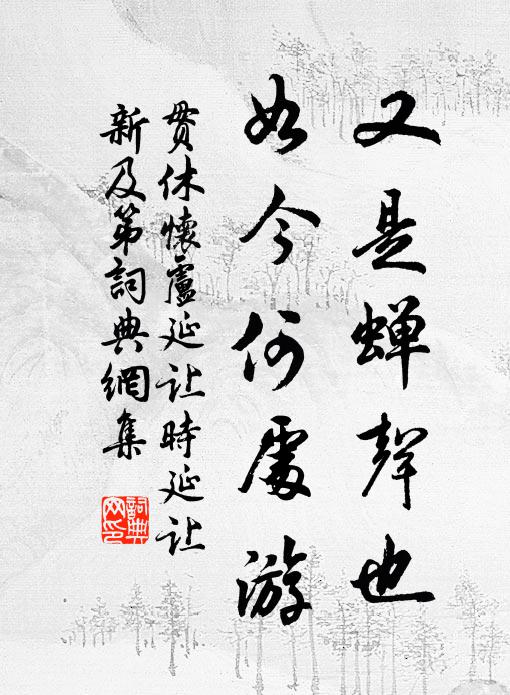 又是蝉聲也
如今何處游
贯休懷盧延让時延让
新及第詞典網集
詞典網印